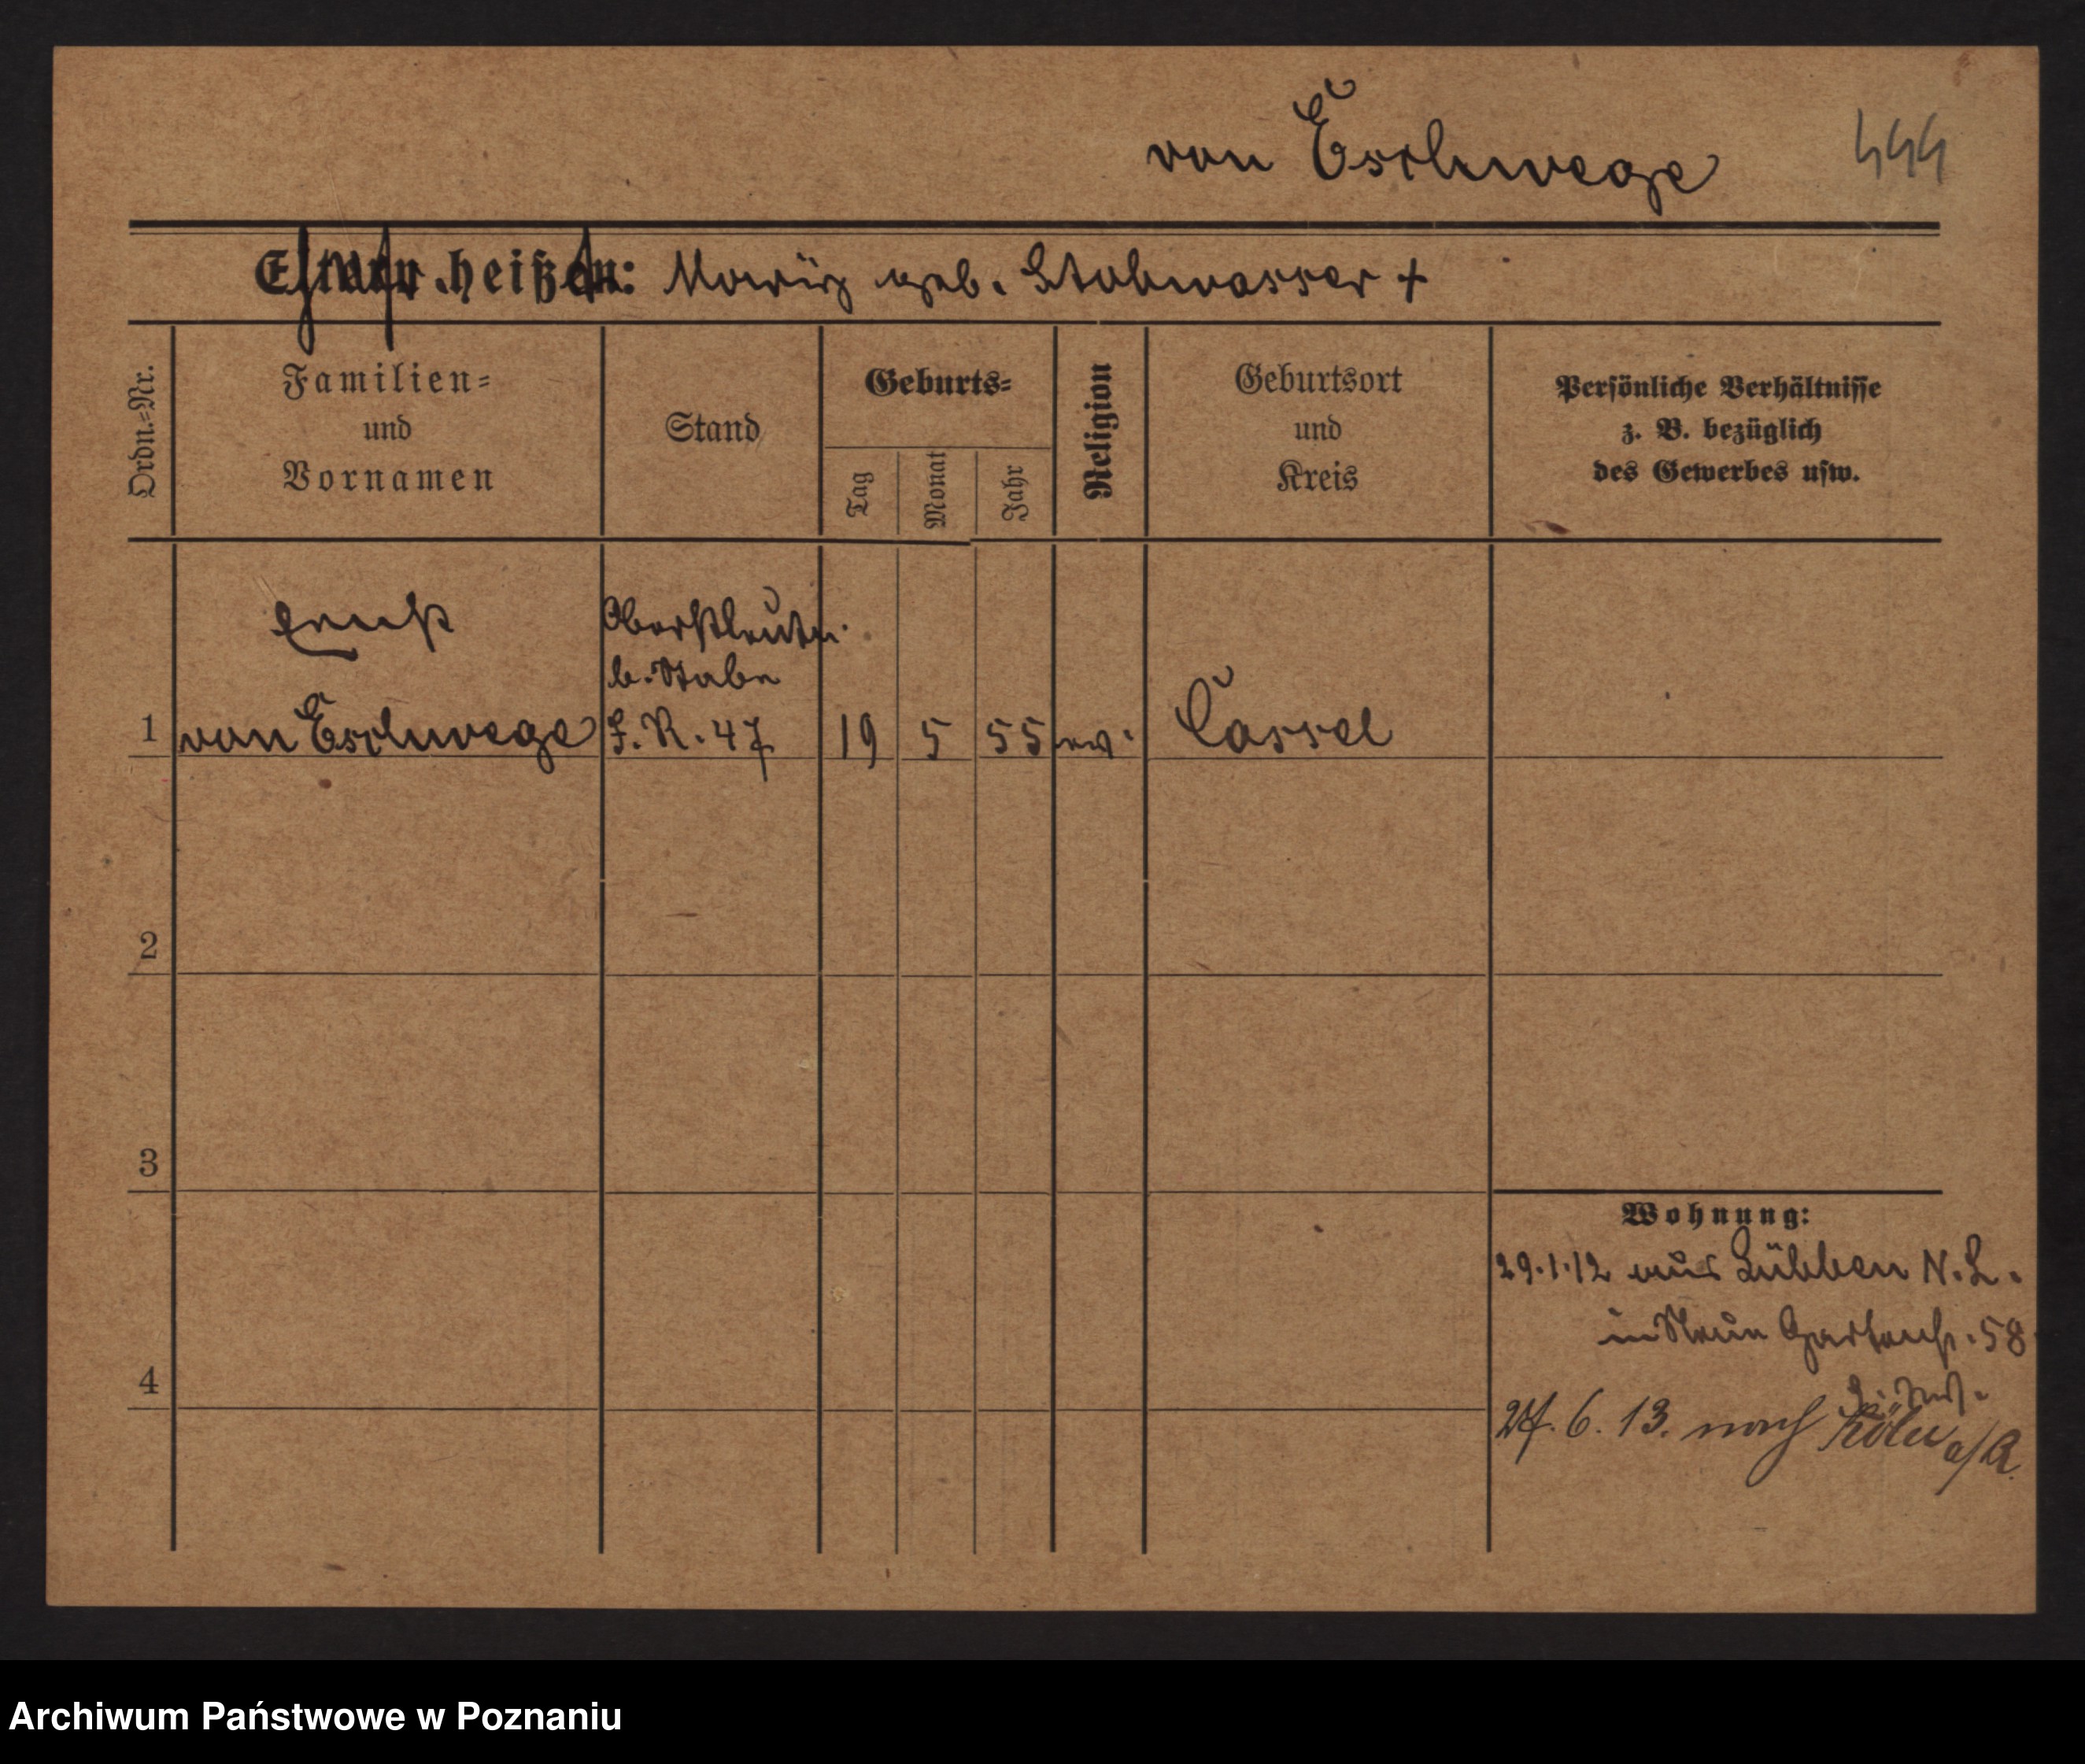 von Eschwege 444
Eltern heißen: Moritz geb. Stobwasser +
Ordn.=Nr.
Familien=
und
Vornamen
Stand
Geburts=
Tag
Monat
Jahr
Religion
Geburtsort
und
Kreis
Persönliche Verhältnisse
z. B. bezüglich
des Gewerbes usw.
Ernst
Oberstleutn.
b. Stabe
1 von Eschwege J. R. 47 19 5 55 ev. Cassel
2
3
4
Wohnung:
29.1.12 aus Lübben N. L.
in Neue Gartenstr. 58
27. 6. 13. nach Köln a/R.
Archiwum Państwowe w Poznaniu